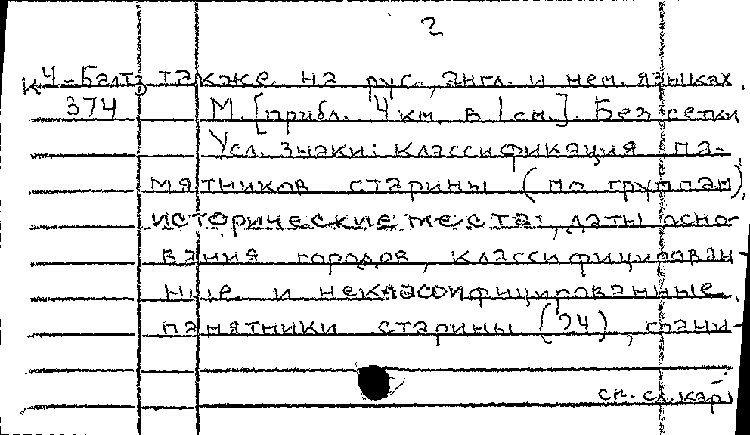 2
К4-Балт, также на рус., англ. и нем. языках.
374 М. [прибл. 4 км в 1 см]. Без сетки
Усл. знаки: классификация па-
мятников старины (по группам),
исторические места, даты осно-
вания городов, классифицирован-
ные и неклассифицированные
памятники старины (24), грани-
см. сл. карт